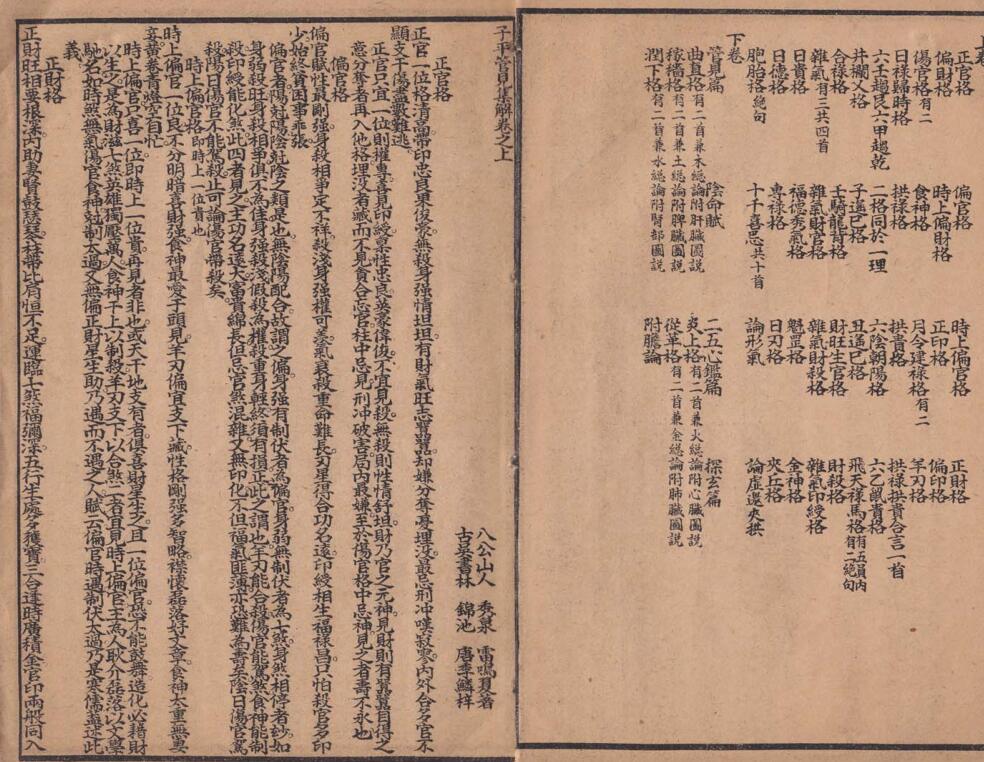 上卷
正官格　偏官格　時上偏官格　正財格
偏財格　時上偏財格　正印格　偏印格
傷官格有二　食神格　月令建祿格有二　羊刃格
日祿歸時格　拱祿格　拱貴格　拱祿拱貴合言一首
六壬趨艮六甲趨乾　二格同於一理　六陰朝陽格　六乙鼠貴格
井欄乂格　子遙巳格　丑遙巳格　飛天祿馬格有五員內有二絕句
合祿格　壬騎龍背格　財旺生官格　財殺格
雜氣有三共四首　雜氣財官格　雜氣財殺格　雜氣印綬格
日貴格　福德秀氣格　魁罡格　金神格
日德格　專祿格　日刃格　夾丘格
胞胎格絕句　十干喜忌共十首　論形氣　論虛邀夾拱
下卷
管見篇　陰命賦　二五心鑑篇　探玄篇
曲直格有二首兼木總論附肝臟圖說　炎上格有二首兼火總論附心臟圖說
稼穡格有二首兼土總論附脾臟圖說　從革格有二首兼金總論附肺臟圖說
潤下格有二首兼水總論附腎部圖說　附膽論
子平管見集解卷之上
八公山人　秀泉　雷鳴夏著
古吳書林　錦池　唐季鱗梓
正官格
正官一位格清高帶印忠良果俊豪無殺身强情坦坦有財氣旺志囂囂却嫌分奪憂埋沒最忌刑冲嘆寂寥內外合多官不
顯支干傷盡數難逃
正官只宜一位則權專喜見印綬稟性忠良英豪偉俊不宜見殺無殺則性情舒坦財乃官之元神見財則有囂囂自得之
意分奪者再入他格埋沒者藏而不見貪合忘官柱中忌見刑冲破害局內最嫌至於傷官格中忌神見之者壽不永也
偏官格
偏官賦性最剛强身殺相爭定不祥殺淺身强權可羨氣衰殺重命難長刃星得合功名遠印綬相生福祿昌只怕殺官多印
少始終貧困事乖張
偏官者陽尅陽陰尅陰之類是也無陰陽配合故謂之偏身强有制伏者為偏官身弱無制伏者為七煞身煞相停者玅如
身弱殺旺身殺相爭俱不為佳身强殺淺假殺為權殺重身輕終須有損正此之謂也羊刃能合殺傷官能駕煞食神能制
殺印綬能化煞此四者見之主功名遠大富貴綿長但忌官煞混雜又無印化不但福氣匪薄亦恐難為壽矣陰日傷官駕
殺陽日傷官不能駕殺止可論傷官帶殺矣
時上偏官格即時上一位貴也
時上偏官一位良不分明暗喜財强食神最愛干頭見羊刃偏宜支下藏性格剛强多智略襟懷磊落好文章食神太重無妻
妾黃卷青燈空自忙
時上偏官只喜一位即時上一位貴再見者非也或天干地支有者俱喜財星生之且一位偏官恐不能鼓舞造化必藉財
以生之是為財滋七煞英雄獨壓萬人食神干上以制殺羊刃支下以合煞二者宜見時上偏官主為人耿介磊落以文學
馳名如時煞無氣傷官食神尅制太過又無偏正財星生助乃遇而不遇之人賦云偏官時遇制伏太過乃是寒儒蓋述此
義
正財格
正財旺相要根深內助妻賢鼓瑟琴柱帶比肩恒不足運臨七煞福彌深五行生處多獲寶三合逢時廣積金官印兩般同入